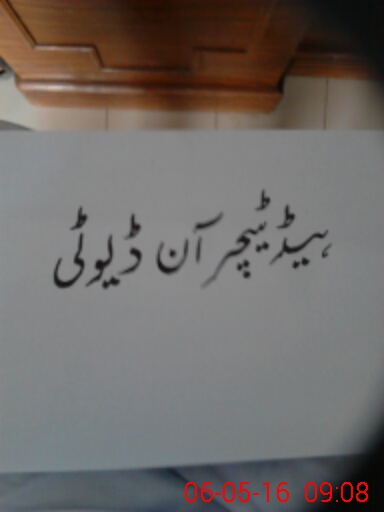 ہیڈ ٹیچر آن ڈیوٹی
06-05-16 09:08